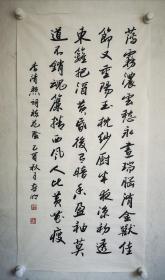 薄霧濃雲愁永晝瑞腦消金獸佳
節又重陽玉枕紗厨半夜涼初透
東籬把酒黃昏後有暗香盈袖莫
道不銷魂簾捲西風人比黃花瘦
李清照詞醉花陰 乙酉秋月